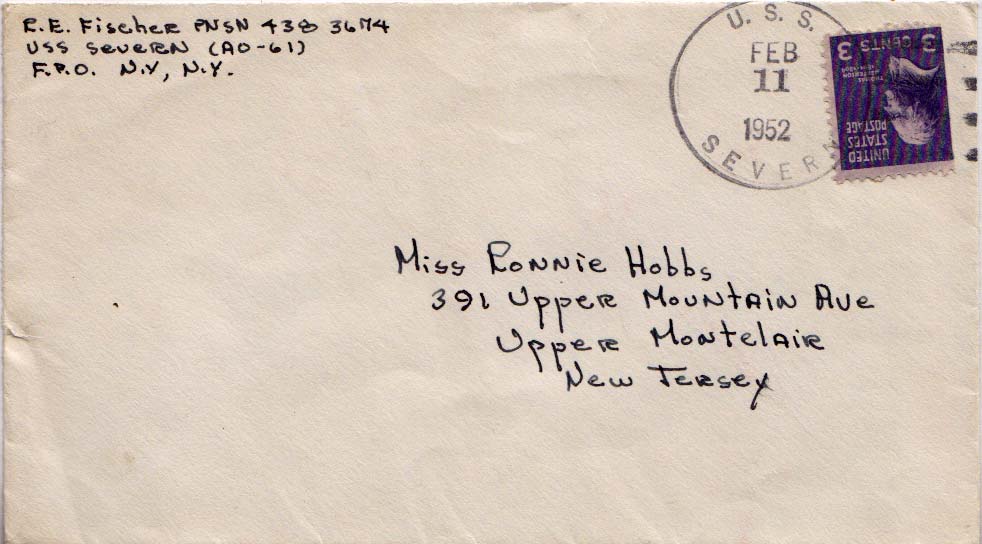 R.E. Fischer PNSN 438 3674
USS Severn (AO-61)
F.P.O. N.Y, N.Y.
U.S.S.
FEB
11
1952
SEVERN
3 CENTS 3
THOMAS
JEFFERSON
UNITED
STATES
POSTAGE
Miss Ronnie Hobbs
391 Upper Mountain Ave
Upper Montclair
New Jersey